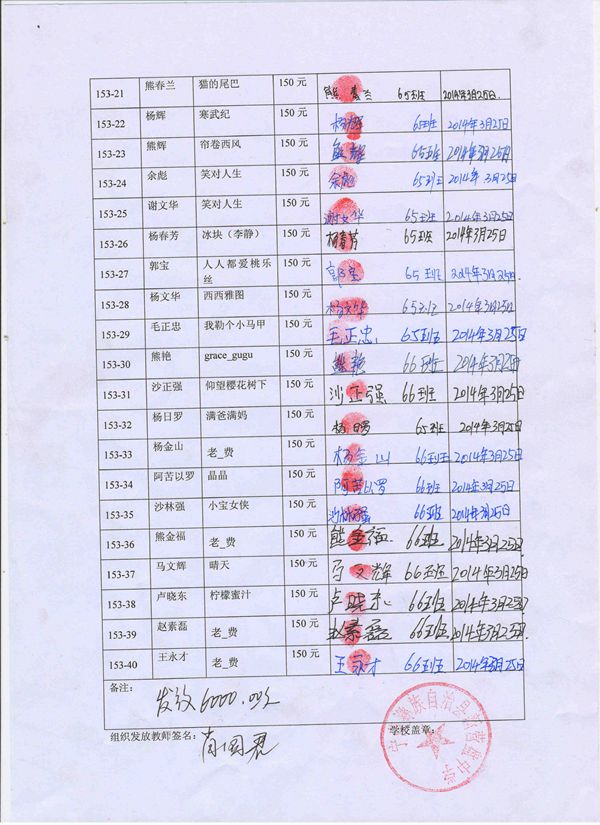 153-21 熊春兰 猫的尾巴 150 元 熊 春 兰 65班 2014年3月25日.
153-22 杨辉 寒武纪 150 元 杨辉 65班 2014年3月25日
153-23 熊辉 帘卷西风 150 元 熊辉 65班 2014年3月25日
153-24 余彪 笑对人生 150 元 余彪 65班 2014年3月25日
153-25 谢文华 笑对人生 150 元 谢文华 65班 2014年3月25日
153-26 杨春芳 冰块（李静） 150 元 杨春芳 65班 2014年3月25日
153-27 郭宝 人人都爱桃乐丝 150 元 郭宝 65班 2014年3月25日.
153-28 杨文华 西西雅图 150 元 杨文华 65班 2014年3月25日
153-29 毛正忠 我勒个小马甲 150 元 毛正忠 65班 2014年3月25日
153-30 熊艳 grace_gugu 150 元 熊艳 66班 2014年3月25日
153-31 沙正强 仰望樱花树下 150 元 沙正强 66班 2014年3月25日
153-32 杨日罗 满爸满妈 150 元 杨日罗 65班 2014年3月25日
153-33 杨金山 老_费 150 元 杨金山 66班 2014年3月25日
153-34 阿苦以罗 晶晶 150 元 阿苦以罗 66班 2014年3月25日
153-35 沙林强 小宝女侠 150 元 沙林强 66班 2014年3月25日
153-36 熊金福 老_费 150 元 熊金福 66班. 2014年3月25日
153-37 马文辉 晴天 150 元 马文辉 66班 2014年3月25日
153-38 卢晓东 柠檬蜜汁 150 元 卢晓东 66班 2014年3月25日
153-39 赵素磊 老_费 150 元 赵素磊 66班 2014年3月25日.
153-40 王永才 老_费 150 元 王永才 66班 2014年3月25日
备注：
发放6000.00元
组织发放教师签名： 学校盖章：
族自治县 中学